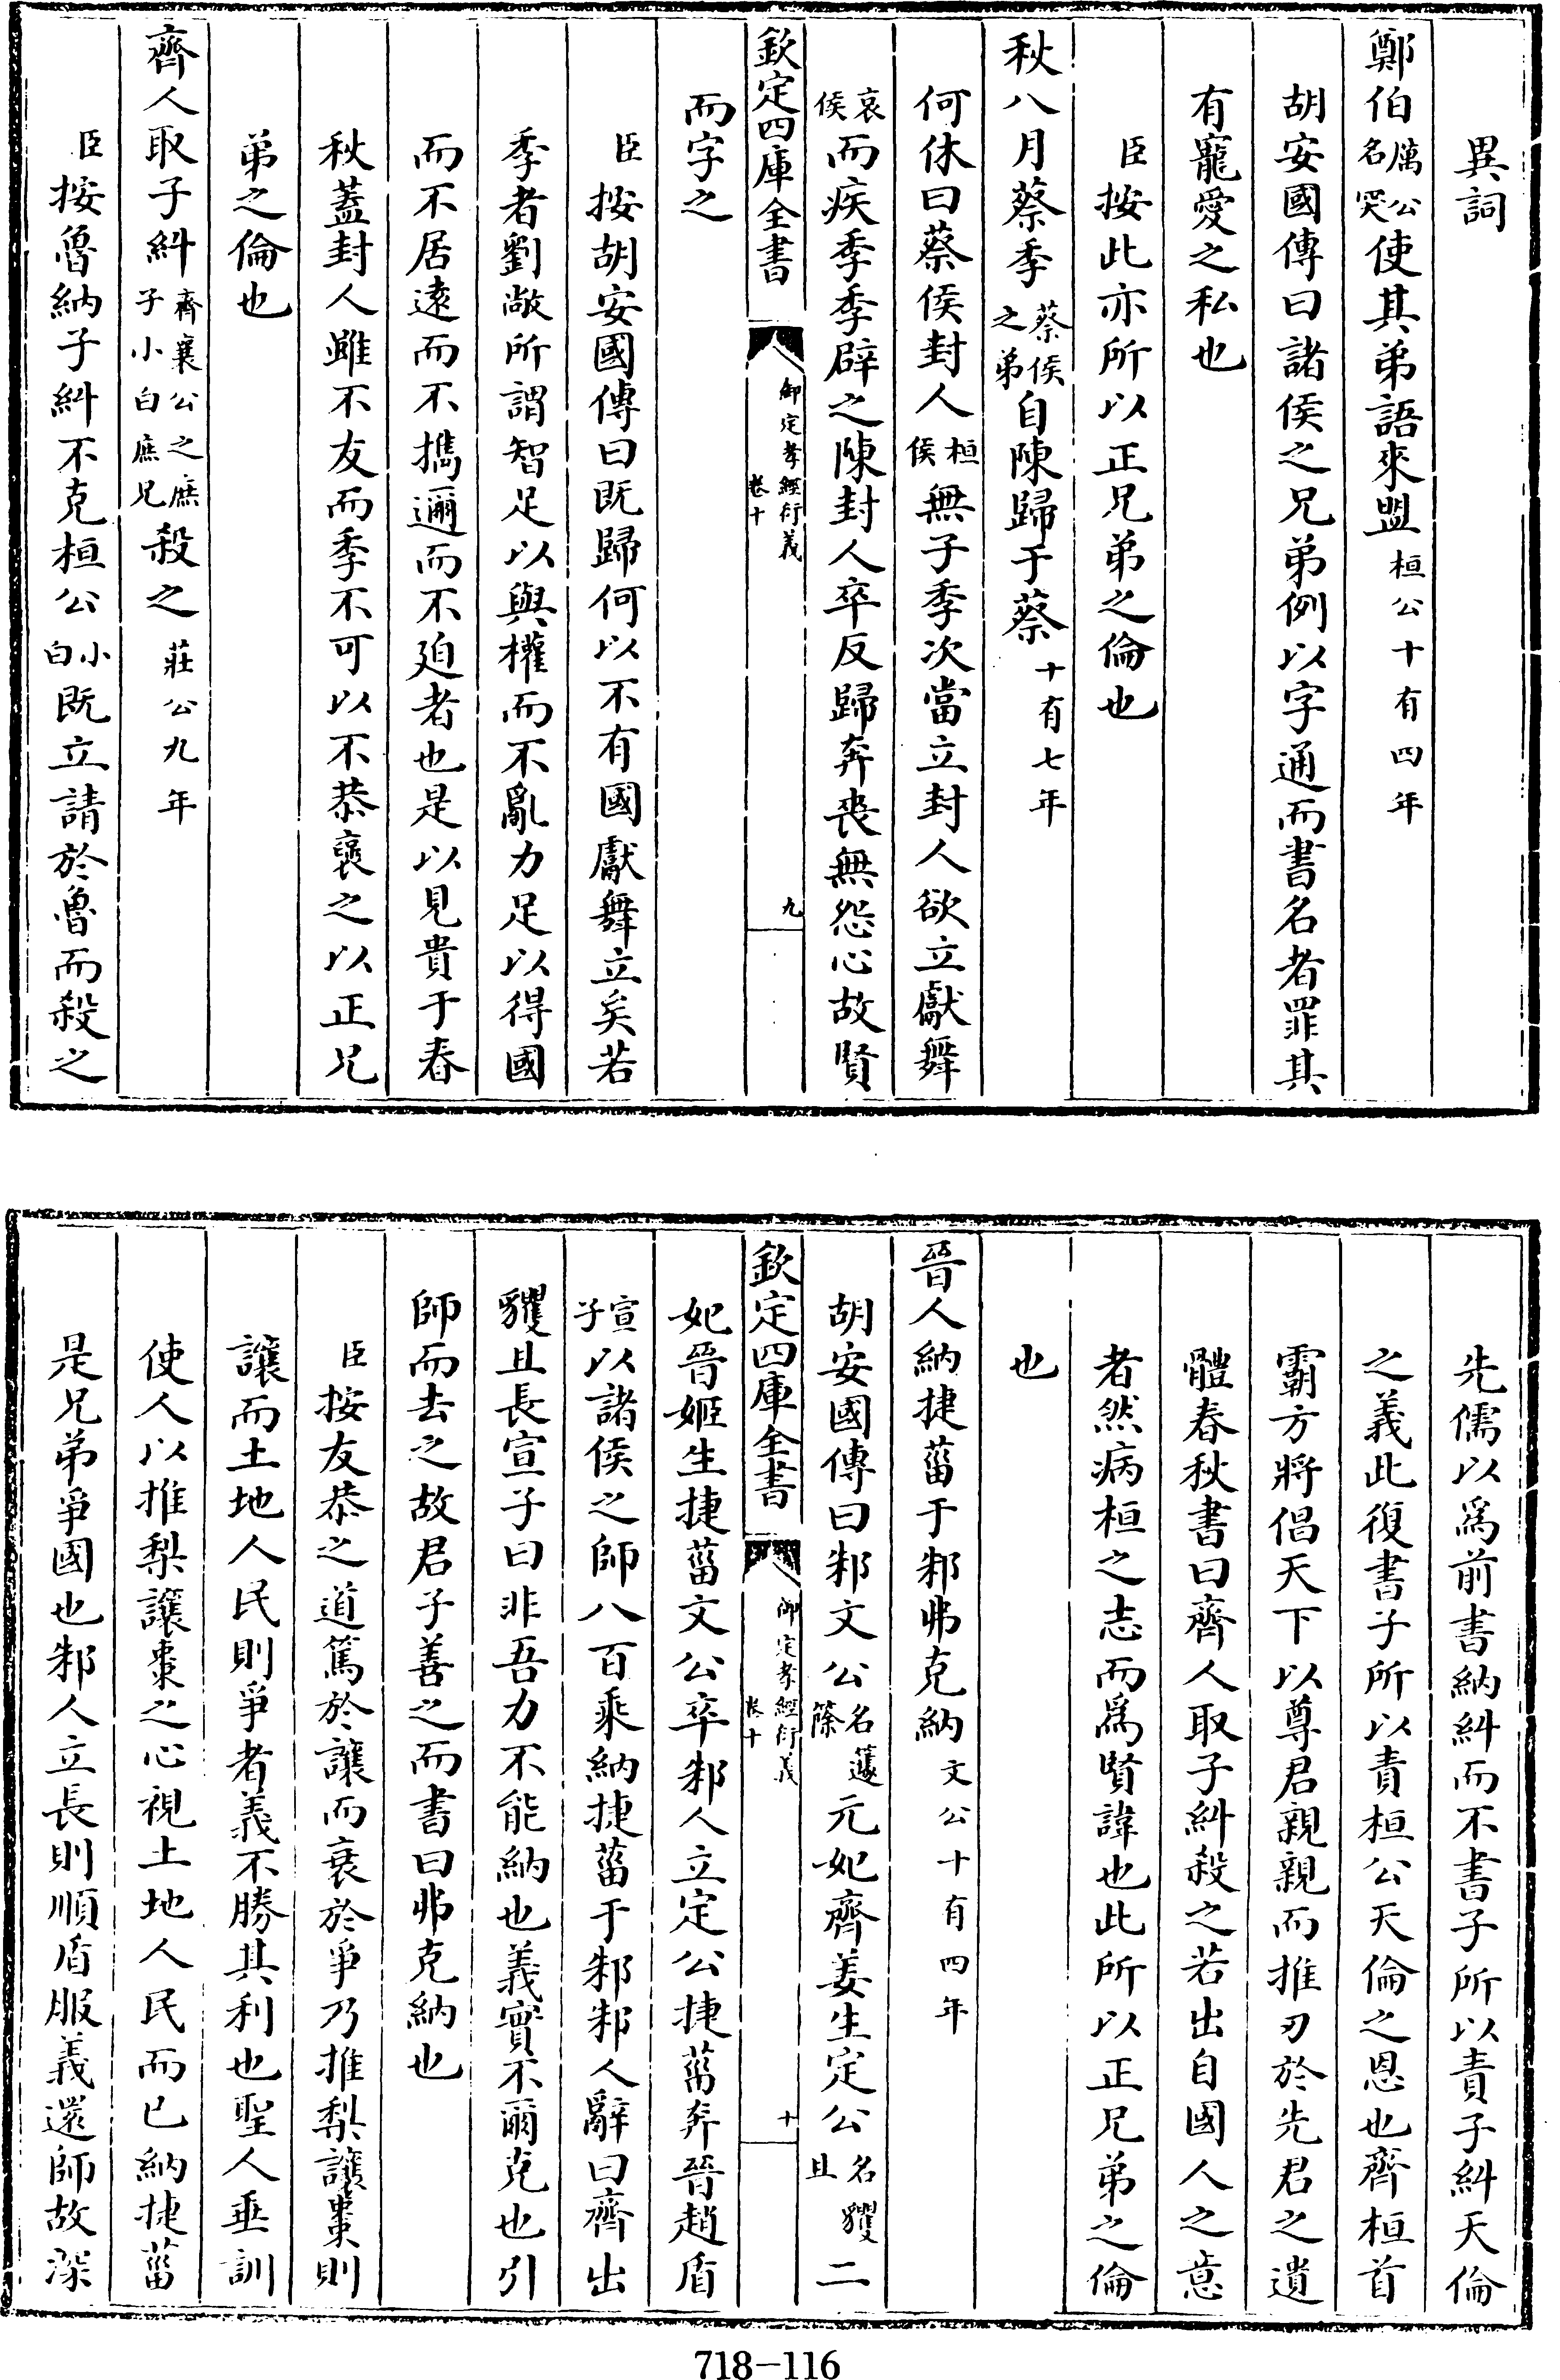 異詞
鄭伯厲公名突使其弟語來盟桓公十有四年
胡安國傳曰諸侯之兄弟例以字通而書名者罪其
有寵愛之私也
臣按此亦所以正兄弟之倫也
秋八月蔡季蔡侯之弟自陳歸于蔡十有七年
何休曰蔡侯封人桓侯無子季次當立封人欲立獻舞
哀侯而疾季季辟之陳封人卒反歸奔喪無怨心故賢
欽定四庫全書
御定孝經衍義
卷十
九
而字之
臣按胡安國傳曰既歸何以不有國獻舞立矣若
季者劉敞所謂智足以與權而不亂力足以得國
而不居遠而不攜邇而不廹者也是以見貴于春
秋蓋封人雖不友而季不可以不恭裒之以正兄
弟之倫也
齊人取子糾齊襄公之庶子小白庶兄殺之莊公九年
臣按魯納子糾不克桓公小白既立請於魯而殺之
先儒以爲前書納糾而不書子所以責子糾天倫
之義此復書子所以責桓公天倫之恩也齊桓首
霸方將倡天下以尊君親親而推刃於先君之遺
體春秋書曰齊人取子糾殺之若出自國人之意
者然病桓之志而爲賢諱也此所以正兄弟之倫
也
晉人納捷菑于邾弗克納文公十有四年
胡安國傳曰邾文公名蘧篨元妃齊姜生定公名貜且二
欽定四庫全書
御定孝經衍義
卷十
十
妃晉姬生捷菑文公卒邾人立定公捷菑奔晉趙盾
宣子以諸侯之師八百乘納捷菑于邾邾人辭曰齊出
貜且長宣子曰非吾力不能納也義實不爾克也引
師而去之故君子善之而書曰弗克納也
臣按友恭之道篤於讓而衰於爭乃推梨讓棗則
讓而土地人民則爭者義不勝其利也聖人垂訓
使人以推梨讓棗之心視土地人民而已納捷菑
是兄弟爭國也邾人立長則順盾服義還師故深
718-116